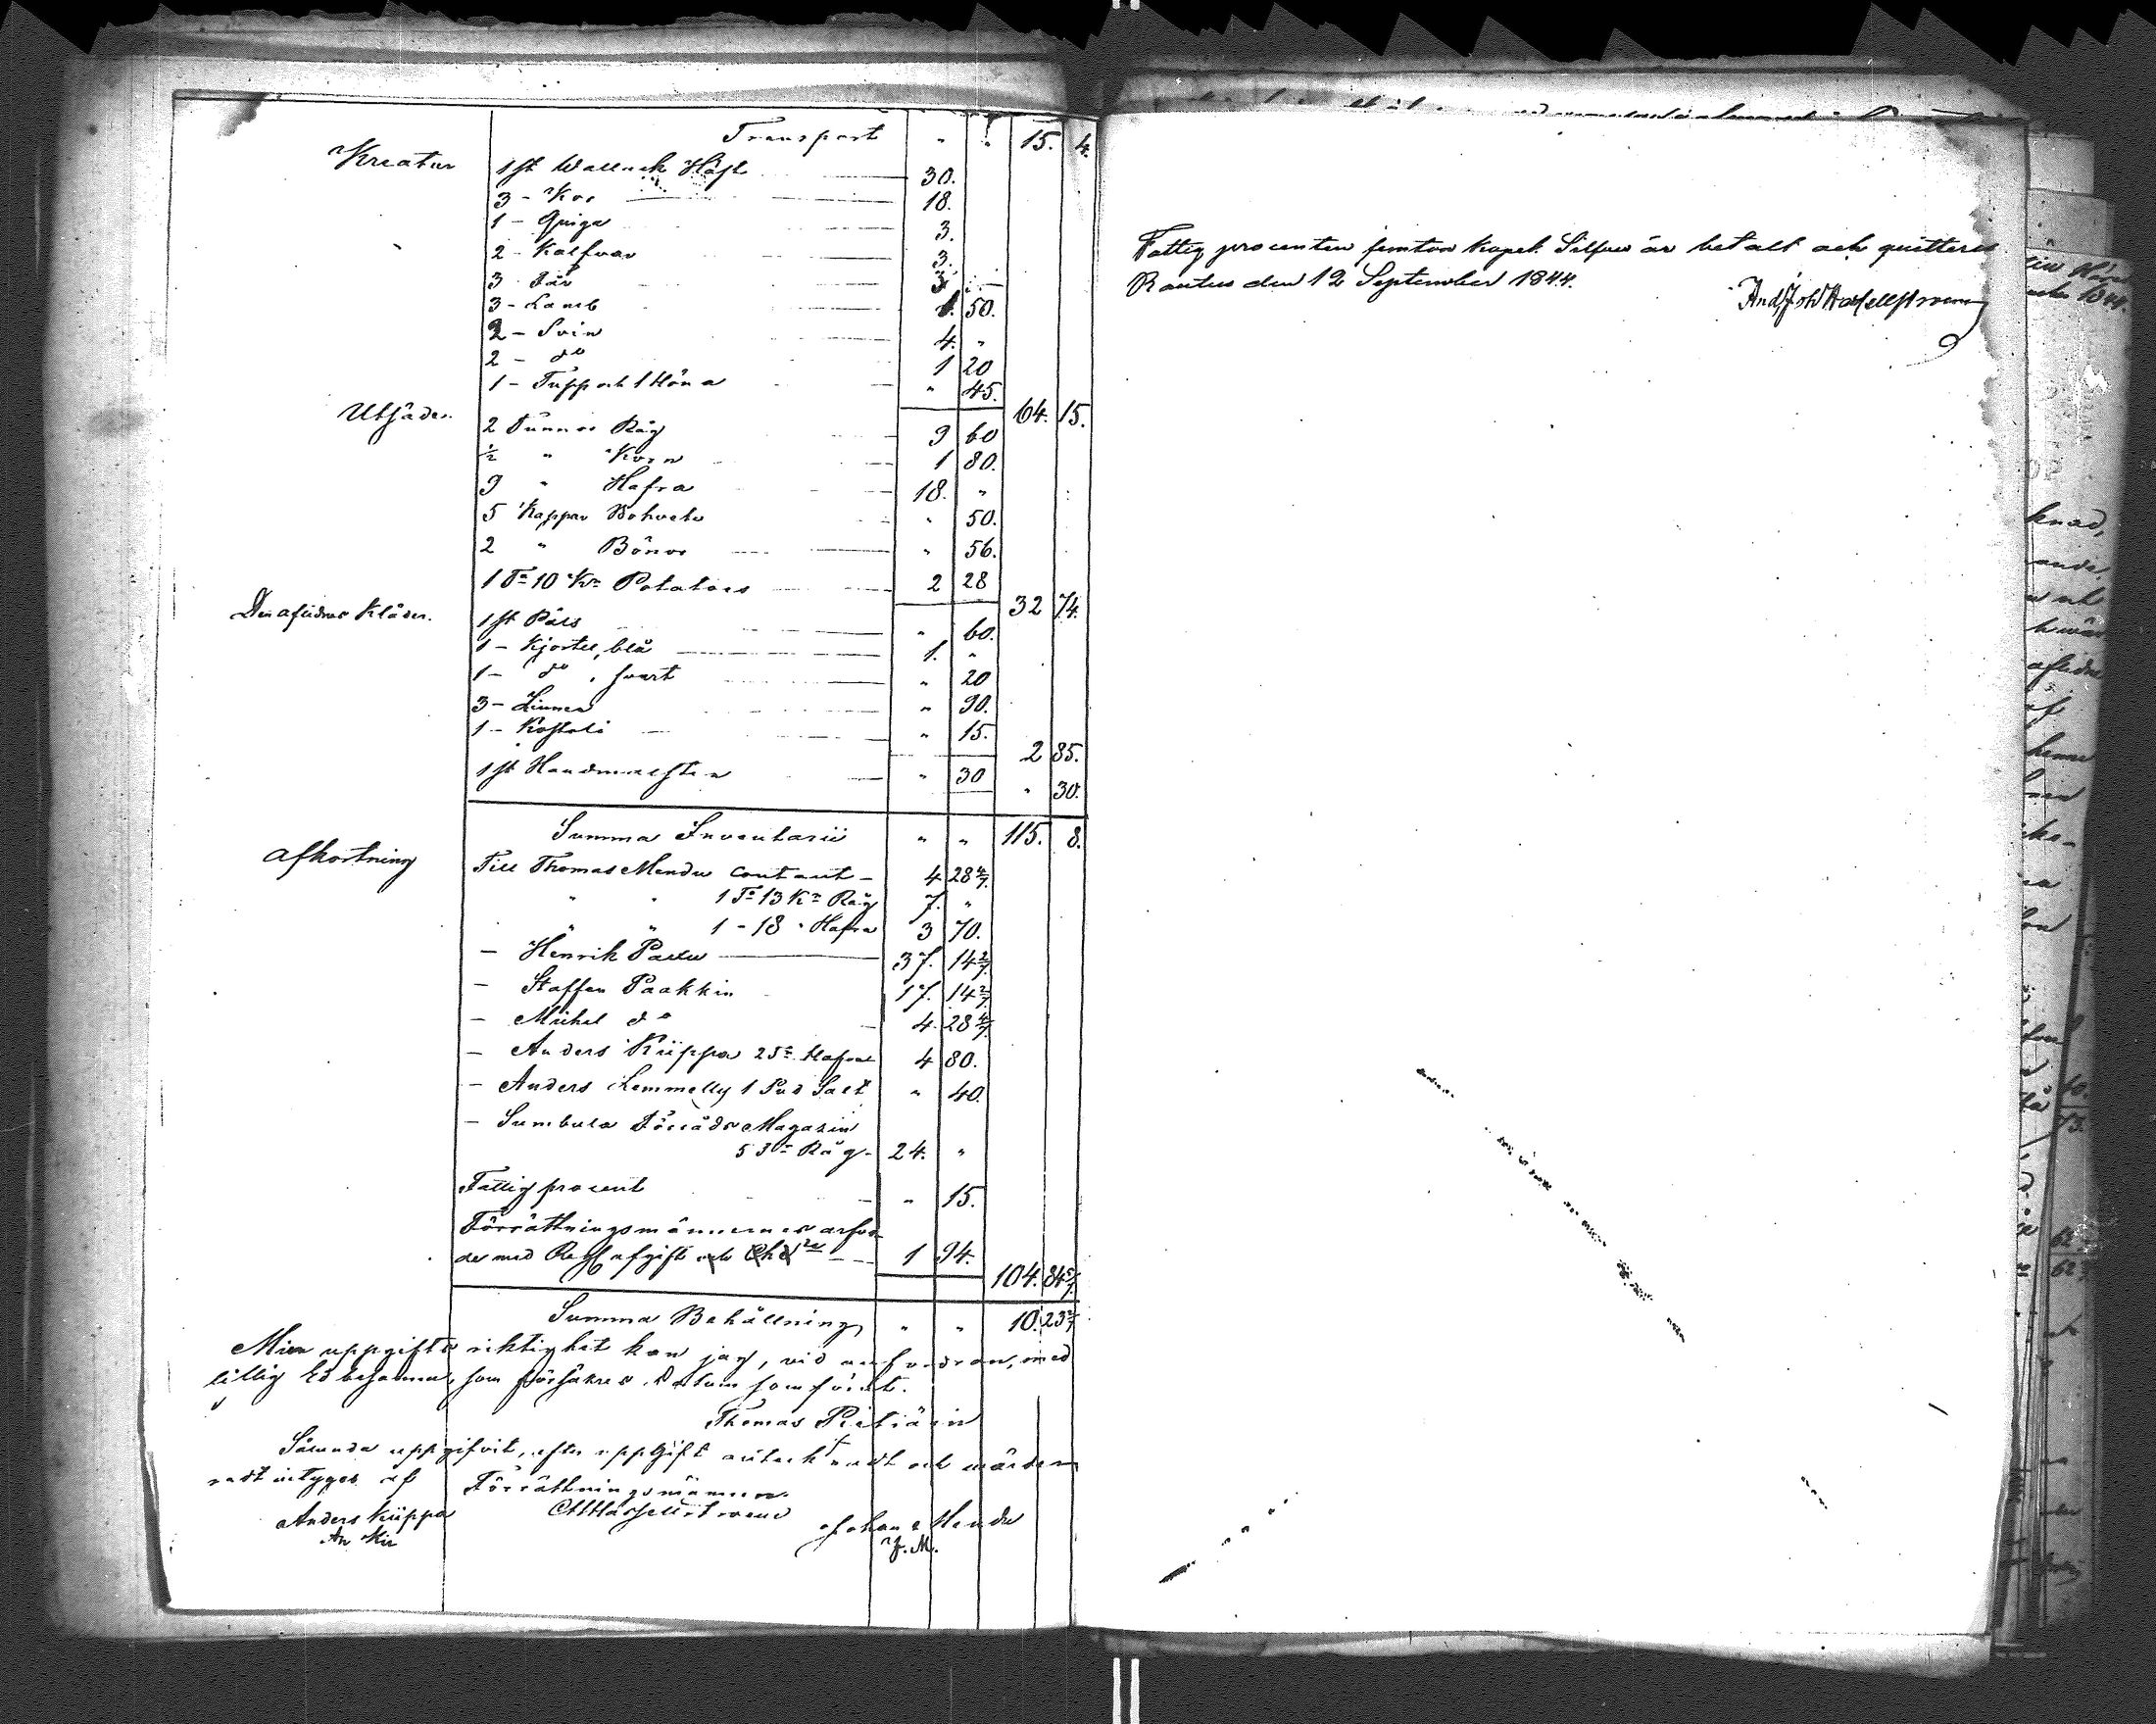 Transport " " 15. 4.
Kreatur 1 st Wallack Häst 30.
3 - Kor 18.
1 - Qviga 3.
2 - Kalfvar 3.
3 Får 3 -
3 - Lamb 1. 50.
2 - Svin 4. "
2 - do 1 20
1 - Tupp och 1 Höna " 45. 64. 15.
Utsäde. 2 Tunnor Råg 9 60
½ " Korn 1 80.
9 " Hafra 18. "
5 Kappar Bohvete " 50.
2 " Bönor " 56.
1 Tna 10 Kr Potatoes 2 28 32 74.
Den aflidnes Kläder. 1 st Päls " 60.
1 - Kjortel, blå 1. "
1 - do , svart " 20
3 - Linnen " 90.
1 - Kostoli " 15. 2 85.
1 st Handmalsten " 30 " 30.
Summa Inventarii " " 115. 8.
Afkortning Till Thomas Mendu contant - 4 28 4/7.
" " 1 Tna 13 Kr Råg 7. "
" " 1 - 18 " Hafra 3 70.
- Henrik 37. 14 2/7.
- Staffan Paakkin 17. 14 2/7
- Michel do 4. 28 4/7.
- Anders Kiippa Hafra 4 80.
- Anders Lemmelly 1 Pud Salt " 40.
- Sumbula Förråds Magazin
5 Råg - 24. "
Fattig procent " 15.
Förrättningsmännernes arfvo-
de med afgift och 1 94. 104. 84 5/7.
Summa Behållning " " 10. 23 2/7
Min uppgifts riktighet kan jag, vid anfordran, med
liflig Ed besanna, som försäkras. Datum som förut.
Thomas Pietiäin
Sålunda uppgifvit, efter uppgift antecknadt och värde-
radt intygas af Förrättningsmännen.
Anders Kiippa Johan Mendu
An Kii J. M.
Fattig procenten femton Kopek Silfver är betalt och quitteras
Rautus den 12 September 1844.
And. Joh. Hasselstrom